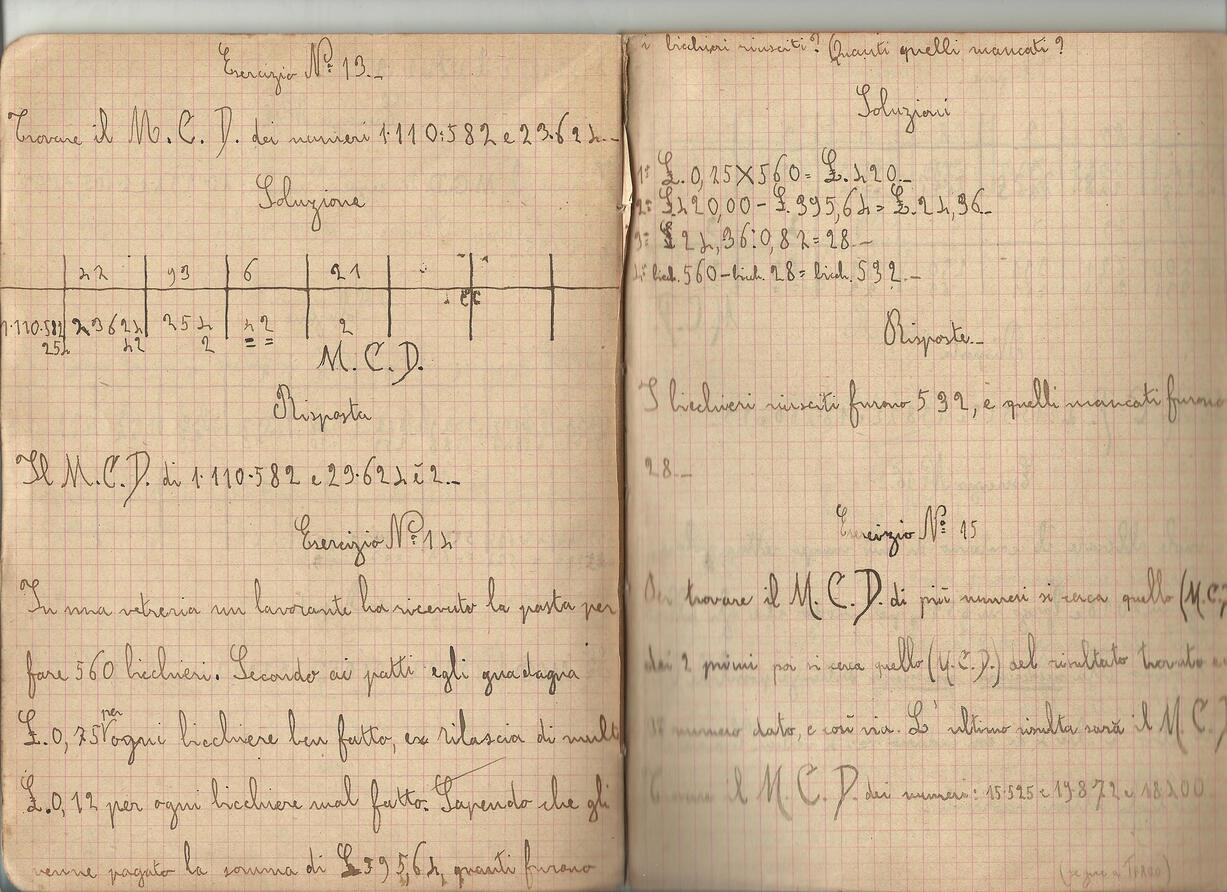 Esercizio Nº 13.-
Trovare il M.C.D. dei numeri 1·110·582 e 23.624.-
Soluzione
42 93 6 21
1·110.582 23624 254 42 2
254 42 2 = =
M.C.D.
Risposta
Il M.C.D. di 1·110·582 e 23·624 è 2.-
Esercizio Nº 14
In una vetreria un lavorante ha ricevuto la pasta per
fare 560 bicchieri. Secondo ai patti egli guadagna
£.0,75 per ogni bicchiere ben fatto, e rilascia di multa
£.0,12 per ogni bicchiere mal fatto. Sapendo che gli
venne pagato la somma di £395,64, quanti furono
i bicchieri riusciti? Quanti quelli mancati?
Soluzioni
1ª £.0,75X560= £.420.-
2ª £420,00- £.395,64= £.24,36.-
3ª £24,36:0,82=28.-
4ª bicch.560-bicch.28= bicch.532.-
Risposte.-
I bicchieri riusciti furono 532, e quelli mancati furono
28.-
Esercizio Nº 15
Per trovare il M.C.D. di più numeri si cerca quello (M.C.D
dei 2 primi poi si cerca quello (M.C.D.) del risultato trovato
3º numero dato, e così via. L'ultimo risulta sarà il M.C.D
Trovare il M.C.D. dei numeri: 15·525 e 19·872 e 18200